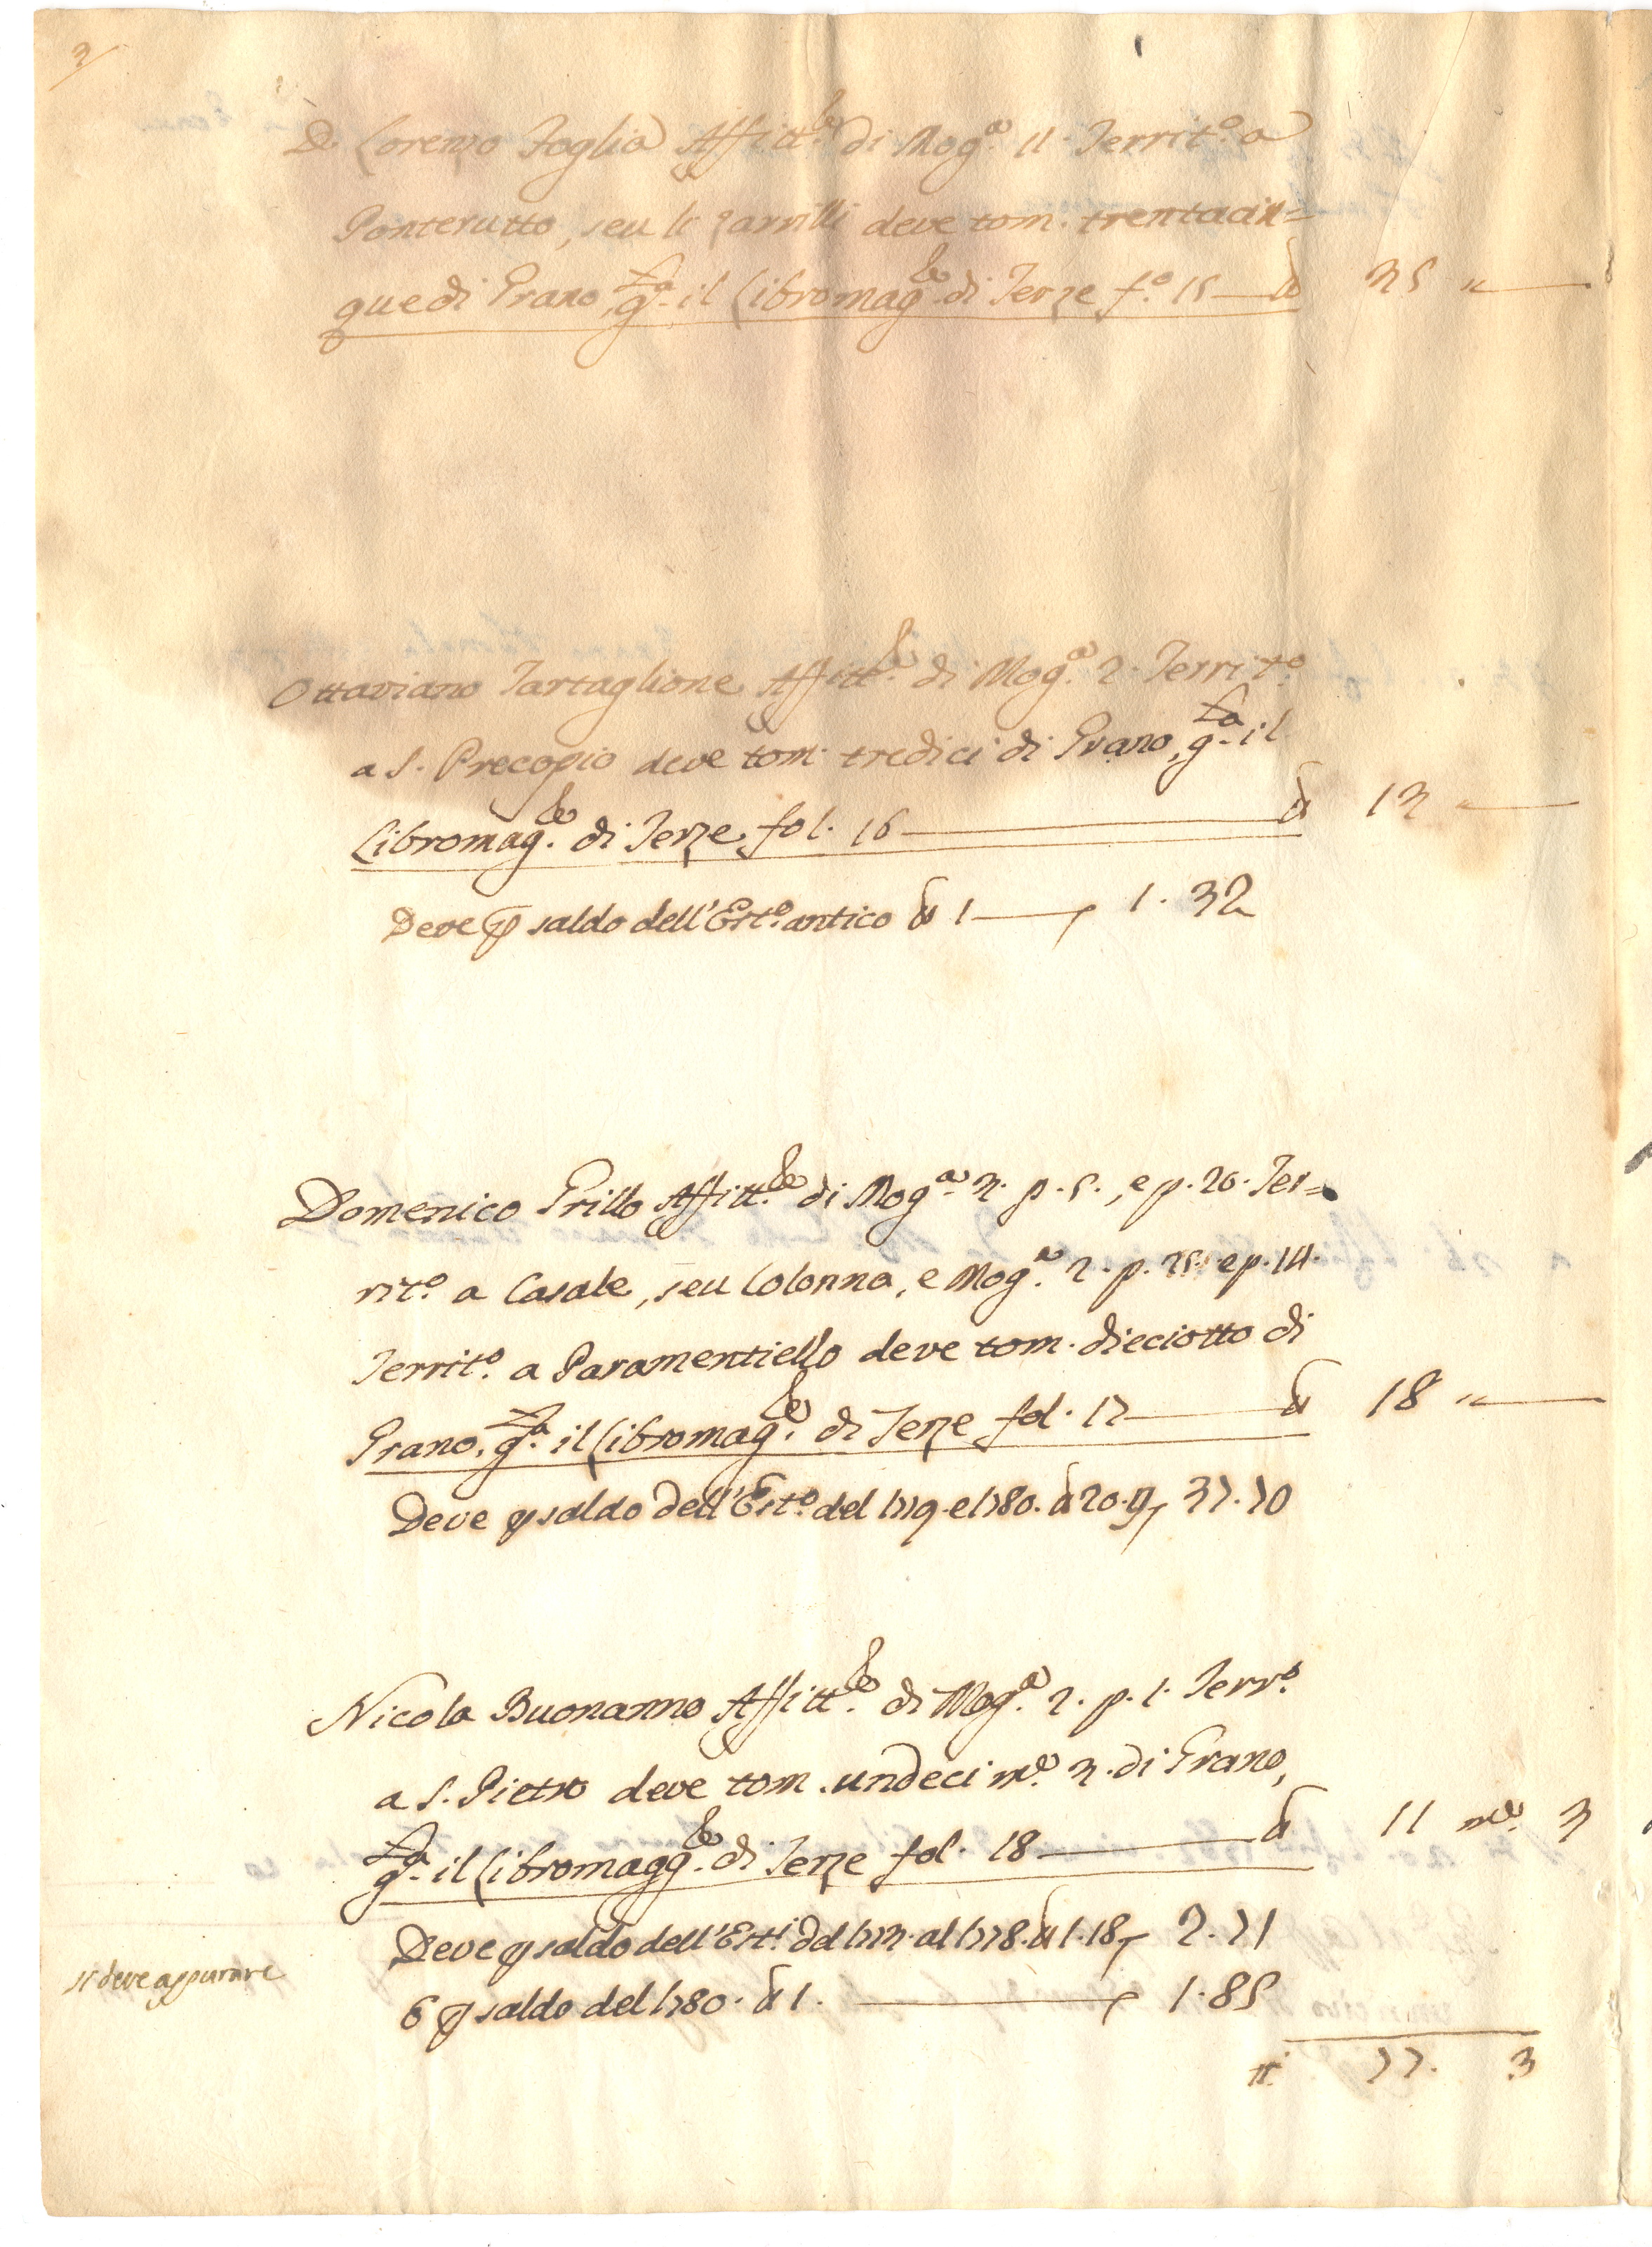 3
D. Lorenzo Foglia Affitt.e di Mog.a 11. Territ.o a
Ponterutto, seu li zarrilli deve tom. trentacin=
que di Grano, g.ta il Libromag.le di Terze f.o 15 — 35 " —
Ottaviano Tartaglione Affitt.e di Mog.a 2. Territ.o
a S. Precopio deve tom. tredici di Grano, g.ta il
Libromag.le di Terze fol. 16 — 13 " —
Deve p saldo dell'Est.o antico 1 — 1. 32
Domenico Grillo Affitt.e di Mog.a 3. p. 5., e p. 26. Ter=
rit.o a Casale, seu Colonna, e Mog.a 2. p. 25. e p. 14.
Territ.o a Paramentiello deve tom. dieciotto di
Grano, g.ta il Libromag.le di Terze fol. 17 — 18 " —
Deve p saldo dell'Est.o del 1779. e 1780. 20. 37. 70
Nicola Buonanno Affitt.e di Mog.a 2. p. 1. Terr.o
a S. Pietro deve tom. undeci m.e 3. di Grano,
g.ta il Libromagg.le di Terze fol. 18 — 11 m.e 3
Deve p saldo dell'Est.i del 1773. al 1778. 1. 18 2. 71
si deve appurare
E p saldo del 1780. 1. — 1. 85
tt. 77. 3